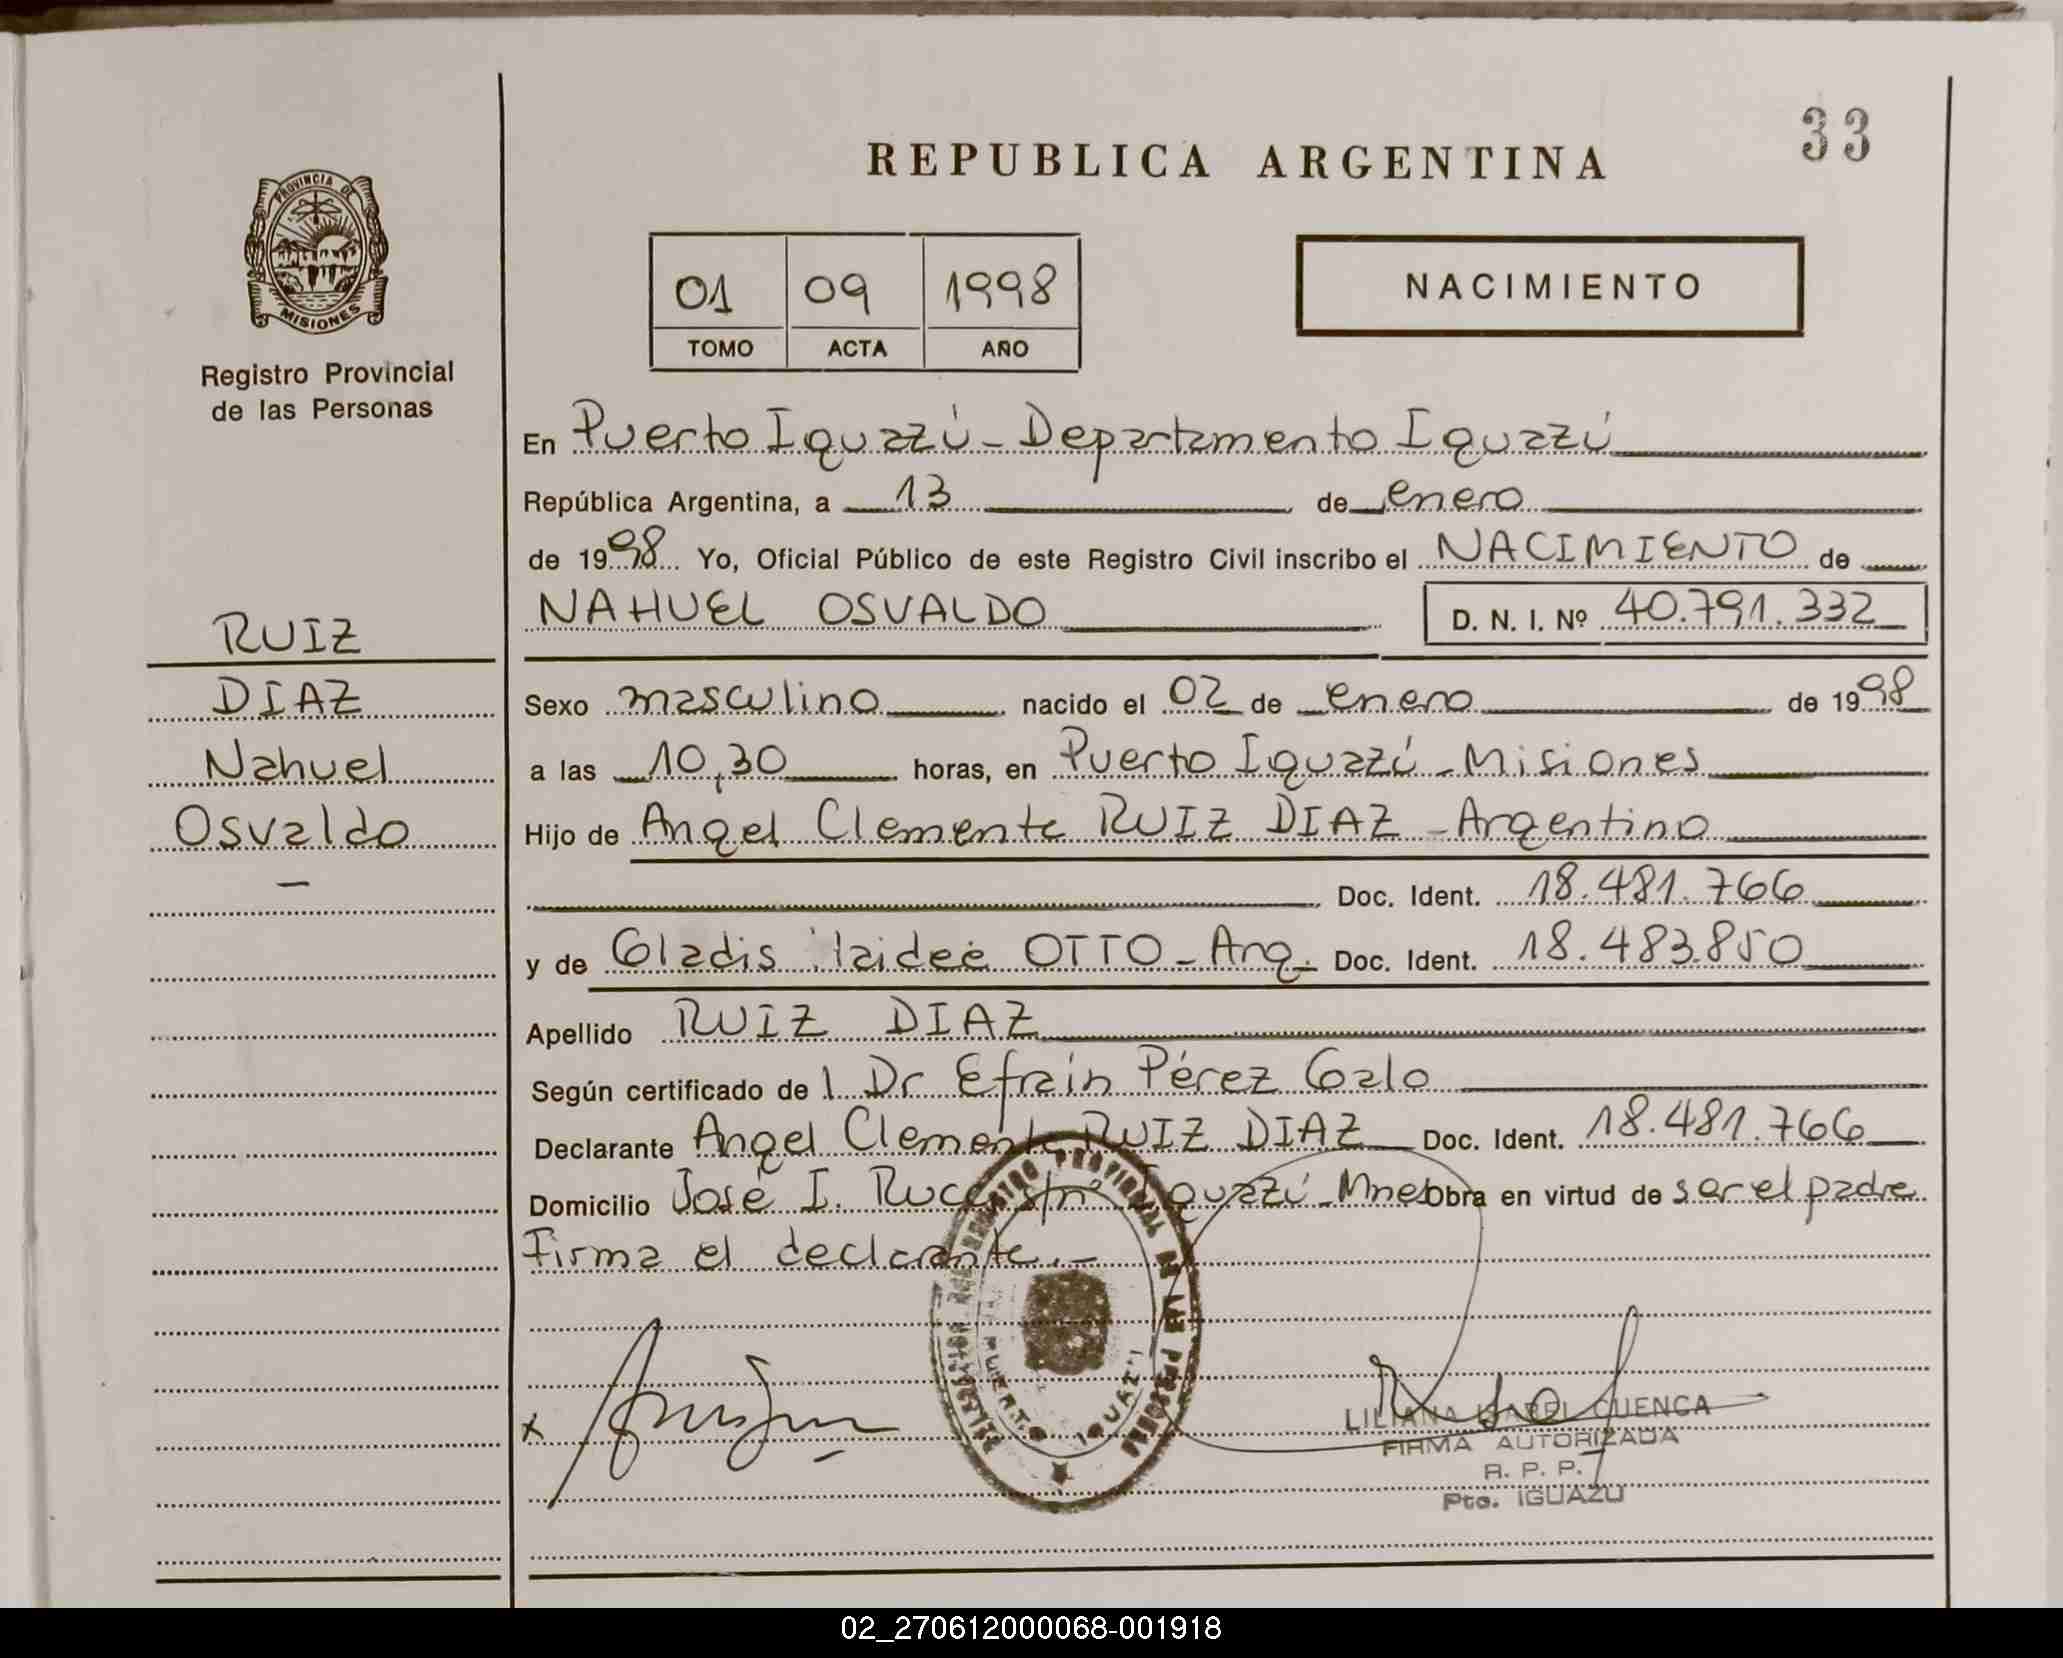 33
REPUBLICA ARGENTINA
PROVINCIA DE
MISIONES
Registro Provincial
de las Personas
01 09 1998
TOMO ACTA AÑO
NACIMIENTO
En Puerto Iguazú - Departamento Iguazú
República Argentina, a 13 de enero
de 1998 Yo, Oficial Público de este Registro Civil inscribo el NACIMIENTO de
NAHUEL OSVALDO D. N. I. Nº 40.791.332
RUIZ
DIAZ
Nahuel
Osvaldo
-
Sexo masculino nacido el 02 de enero de 1998
a las 10,30 horas, en Puerto Iguazú - Misiones
Hijo de Angel Clemente RUIZ DIAZ - Argentino
Doc. Ident. 18.481.766
y de Gladis OTTO - Arg. Doc. Ident. 18.483.850
Apellido RUIZ DIAZ
Según certificado de l Dr Efraín Pérez Galo
Declarante Angel Clemente RUIZ DIAZ Doc. Ident. 18.481.766
Domicilio José I. Iguazú - Mnes Obra en virtud de ser el padre
Firma el declarante. -
x
REGISTRO PROVINCIAL DE LAS PERSONAS
PUERTO IGUAZU
LILIANA ISABEL CUENCA
FIRMA AUTORIZADA
R. P. P.
Pto. IGUAZU
02_270612000068-001918